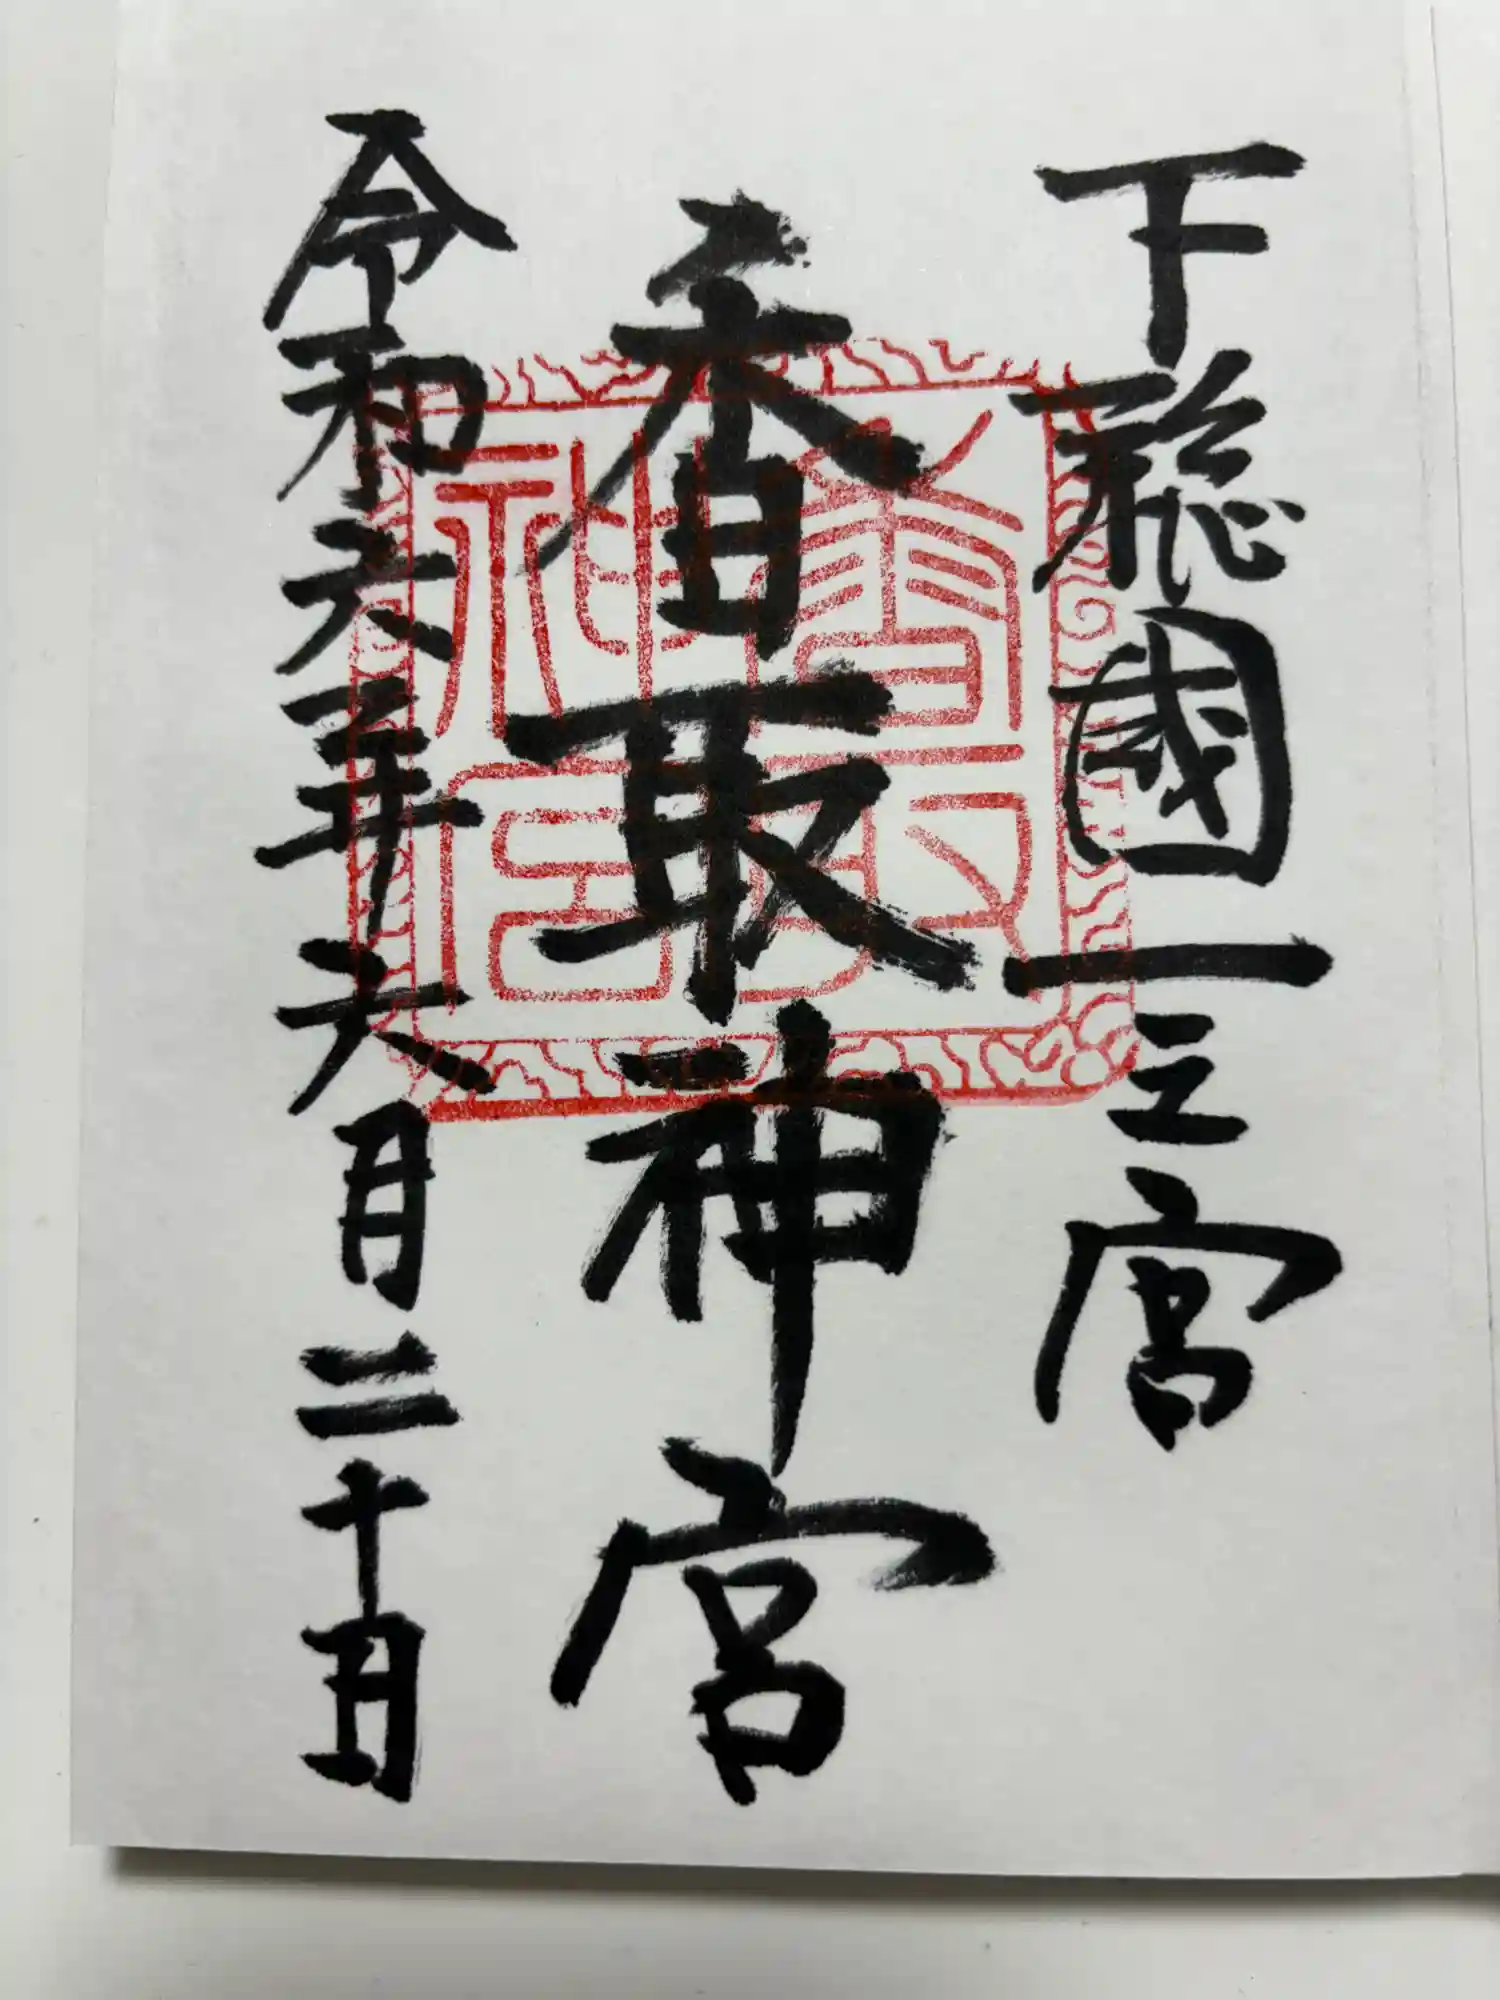 下総國一之宮
香取神宮
令和六年六月二十日
香取
神宮